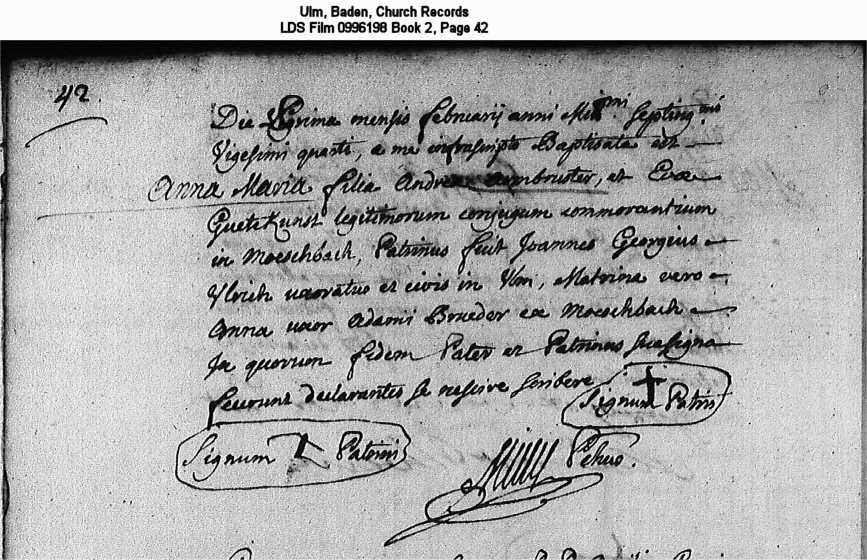 Ulm, Baden, Church Records
LDS Film 0996198 Book 2, Page 42
42.
Die mensis februarij anni Mill.mi Septing.mi
Vigesimi quarti, a me infrascripto Baptisata est
Anna Maria filia Andreae Armbruster, et Evae
Guetekunst legitimorum conjugum commorantium
in Moeschbach, Patrinus fuit Joannes Georgius
Ulrich uxoratus et civis in Ulm, Matrina vero
Anna uxor Adami Brueder ex Moeschbach
In quorum fidem Pater et Patrinus sua signa
fecerunt declarantes se nescire scribere
Signum Patris
Signum Patrini